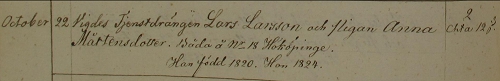 October 22 Vigdes Tjenstdrängen Lars Larsson och Pigan Anna
Mårtensdotter. Båda å No 18 Hököpinge.
Han född 1820. Hon 1824.